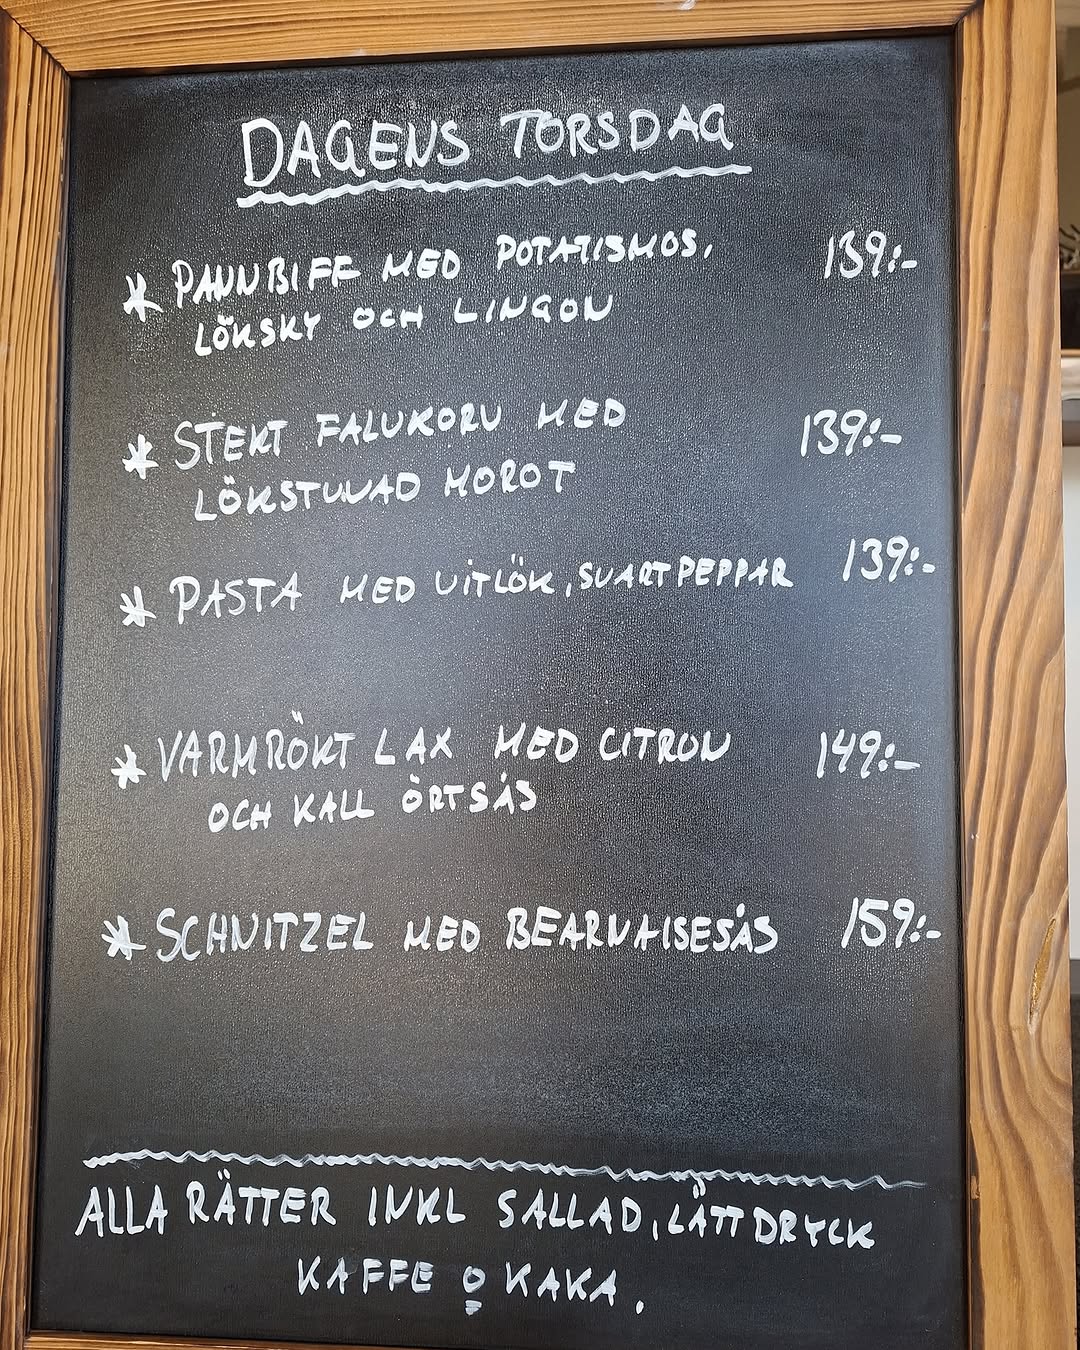 DAGENS TORSDAG
* PANNBIFF MED POTATISMOS, 139:-
LÖKSKY OCH LINGON
* STEKT FALUKORV MED 139:-
LÖKSTUVAD MOROT
* PASTA MED VITLÖK, SVARTPEPPAR 139:-
* VARMRÖKT LAX MED CITRON 149:-
OCH KALL ÖRTSÅS
* SCHNITZEL MED BEARNAISESÅS 159:-
ALLA RÄTTER INKL SALLAD, LÄTTDRYCK
KAFFE o KAKA.